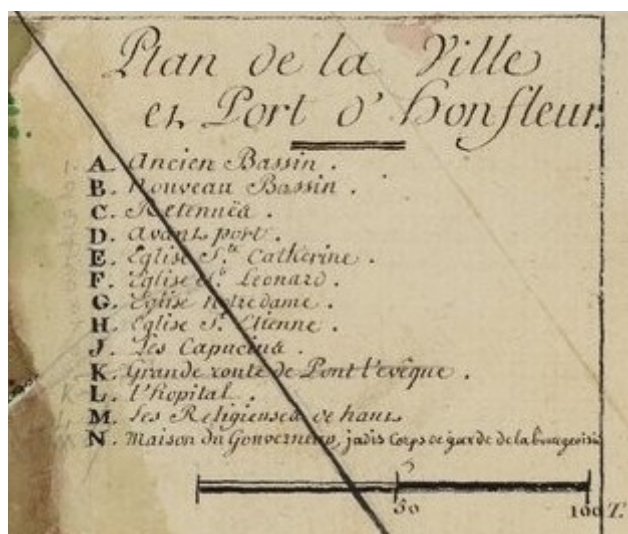 Plan de la Ville
et Port d'Honfleur.
A. Ancien Bassin.
B. Nouveau Bassin.
C. Retenues.
D. avant port.
E. Eglise Ste Catherine.
F. Eglise St Leonard.
G. Eglise Notre dame.
H. Eglise St Etienne.
J. Les Capucins.
K. Grande route de Pont l'evêque.
L. l'hopital.
M. les Religieuses de haut
N. Maison du Gouverneur, jadis Corps de garde de la bourgeoisie
50 100 T.